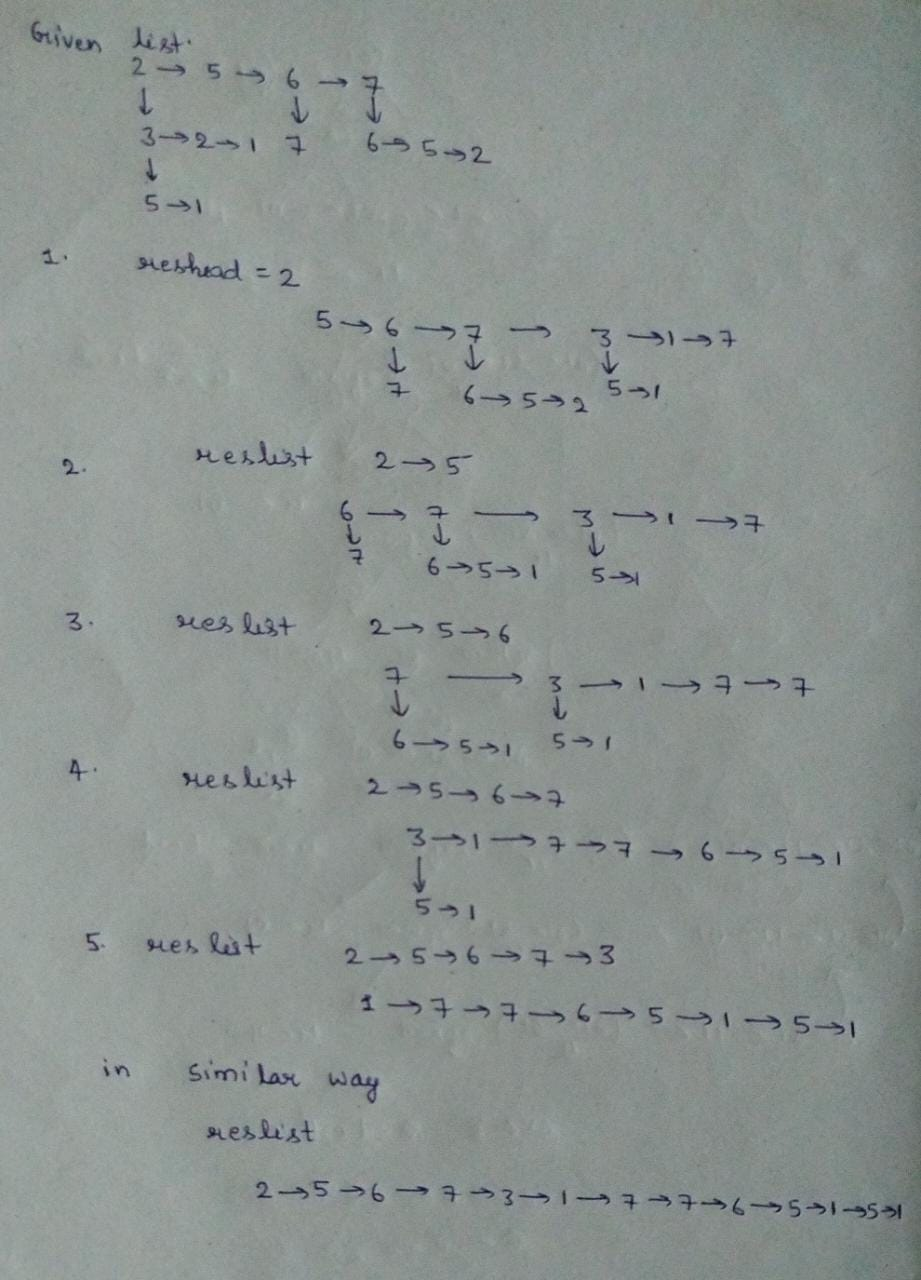 Given list.
2 → 5 → 6 → 7
↓ ↓ ↓
3→2→1 7 6→5→2
↓
5→1
1. reshead = 2
5→6→7 → 3→1→7
↓ ↓ ↓
7 6→5→2 5→1
2. reslist 2→5
6→7→3→1→7
↓ ↓ ↓
7 6→5→1 5→1
3. reslist 2→5→6
7→3→1→7→7
↓ ↓
6→5→1 5→1
4. reslist 2→5→6→7
3→1→7→7→6→5→1
↓
5→1
5. reslist 2→5→6→7→3
1→7→7→6→5→1→5→1
in similar way
reslist
2→5→6→7→3→1→7→7→6→5→1→5→1